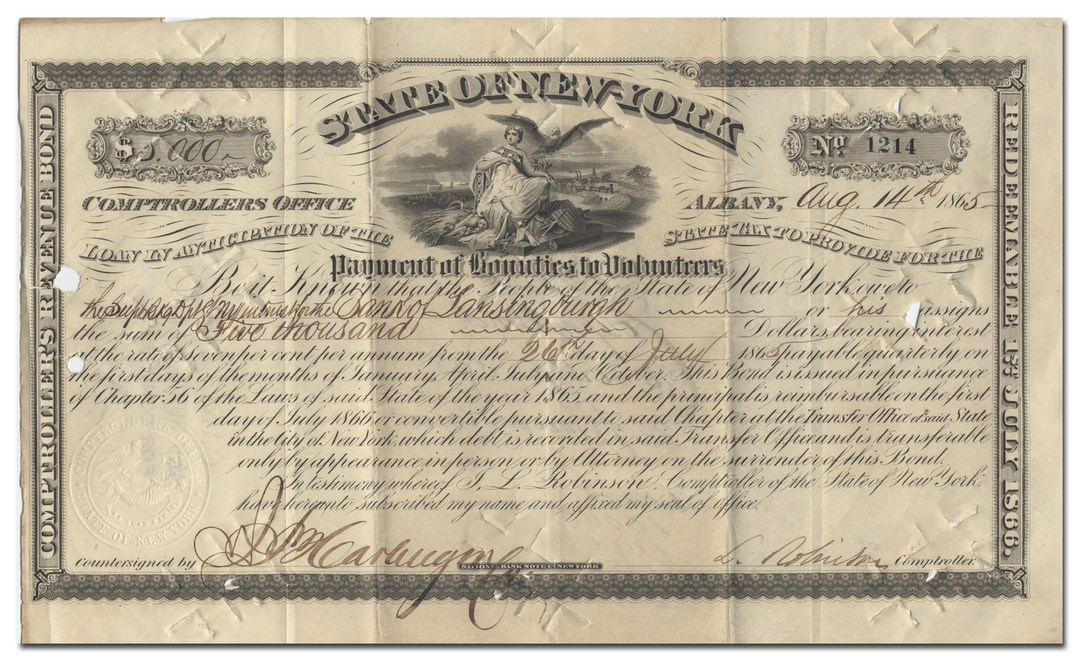 STATE OF NEW-YORK
$5.000
No. 1214
COMPTROLLERS OFFICE
ALBANY, Aug. 14th 1865
LOAN IN ANTICIPATION OF THE STATE TAX TO PROVIDE FOR THE
Payment of Bounties to Volunteers
Be it Known that the People of the State of New York owe to
the Supt. Bkg. Dept. of N.Y. in trust for the Bank of Lansingburgh or his assigns
the sum of Five thousand Dollars, bearing interest
at the rate of seven per cent per annum from the 26th day of July 1865 payable quarterly on
the first days of the months of January, April, July and October. This Bond is issued in pursuance
of Chapter 56 of the Laws of said State of the year 1865 and the principal is reimbursable on the first
day of July 1866, or convertible pursuant to said Chapter at the Transfer Office of said State
in the City of New York, which debt is recorded in said Transfer Office and is transferable
only by appearance in person or by Attorney on the surrender of this Bond.
In testimony whereof I, L. Robinson, Comptroller of the State of New York,
have hereunto subscribed my name and affixed my seal of Office.
Countersigned by
L. Robinson Comptroller.
NATIONAL BANK NOTE CO. NEW YORK
COMPTROLLER'S REVENUE BOND
REDEEMABLE 1ST JULY 1866.
STATE OF NEW YORK